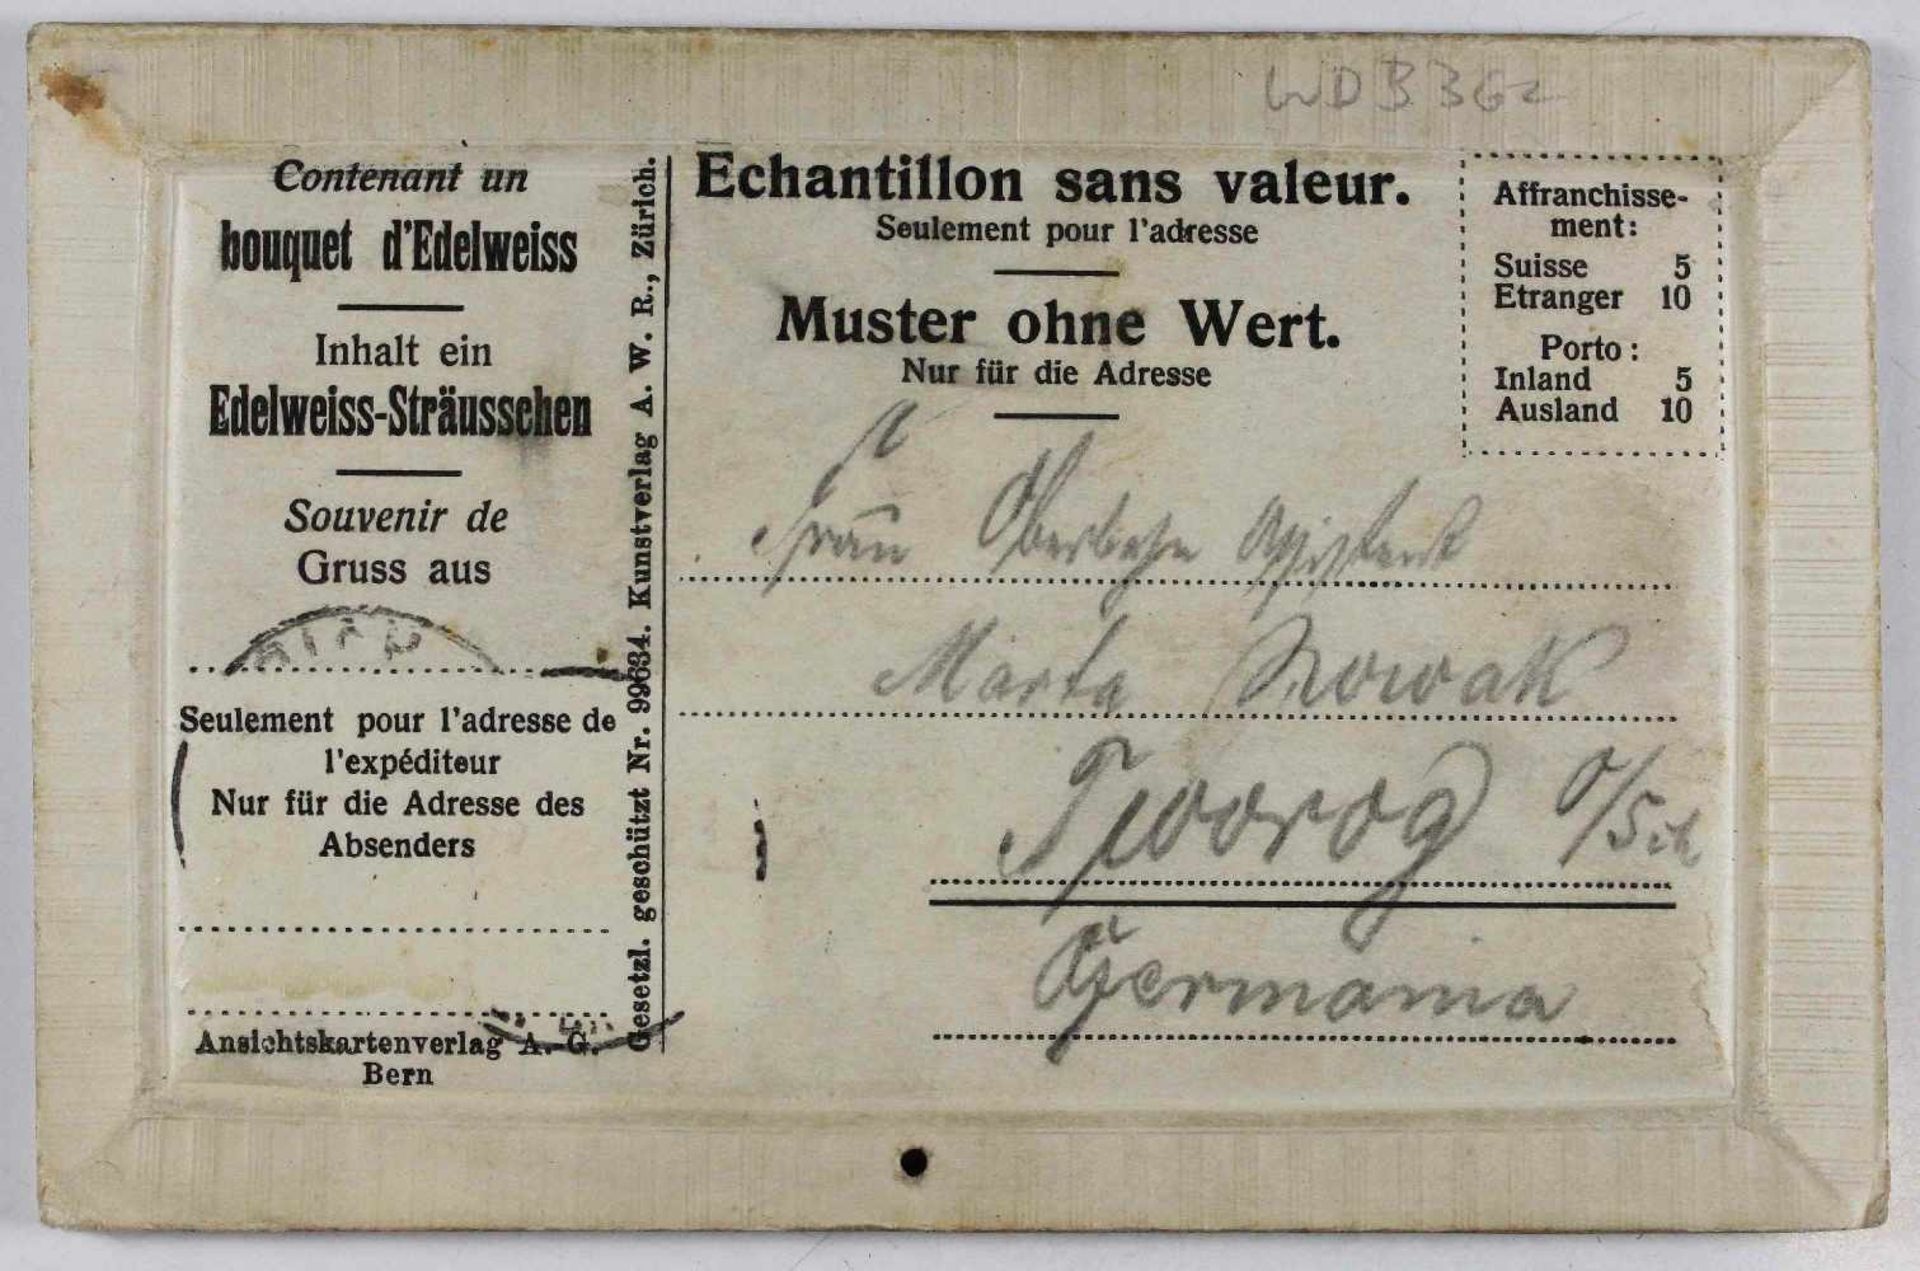 WD 336z
Contenant un
bouquet d'Edelweiss
Inhalt ein
Edelweiss-Sträusschen
Souvenir de
Gruss aus
Seulement pour l'adresse de
l'expéditeur
Nur für die Adresse des
Absenders
Ansichtskartenverlag A. G.
Bern
Gesetzl. geschützt Nr. 99634. Kunstverlag A. W. R., Zürich.
Echantillon sans valeur.
Seulement pour l'adresse
Muster ohne Wert.
Nur für die Adresse
Affranchisse-
ment:
Suisse 5
Etranger 10
Porto:
Inland 5
Ausland 10
Frau
Marta Nowak
Tworog O/Sch
Germania